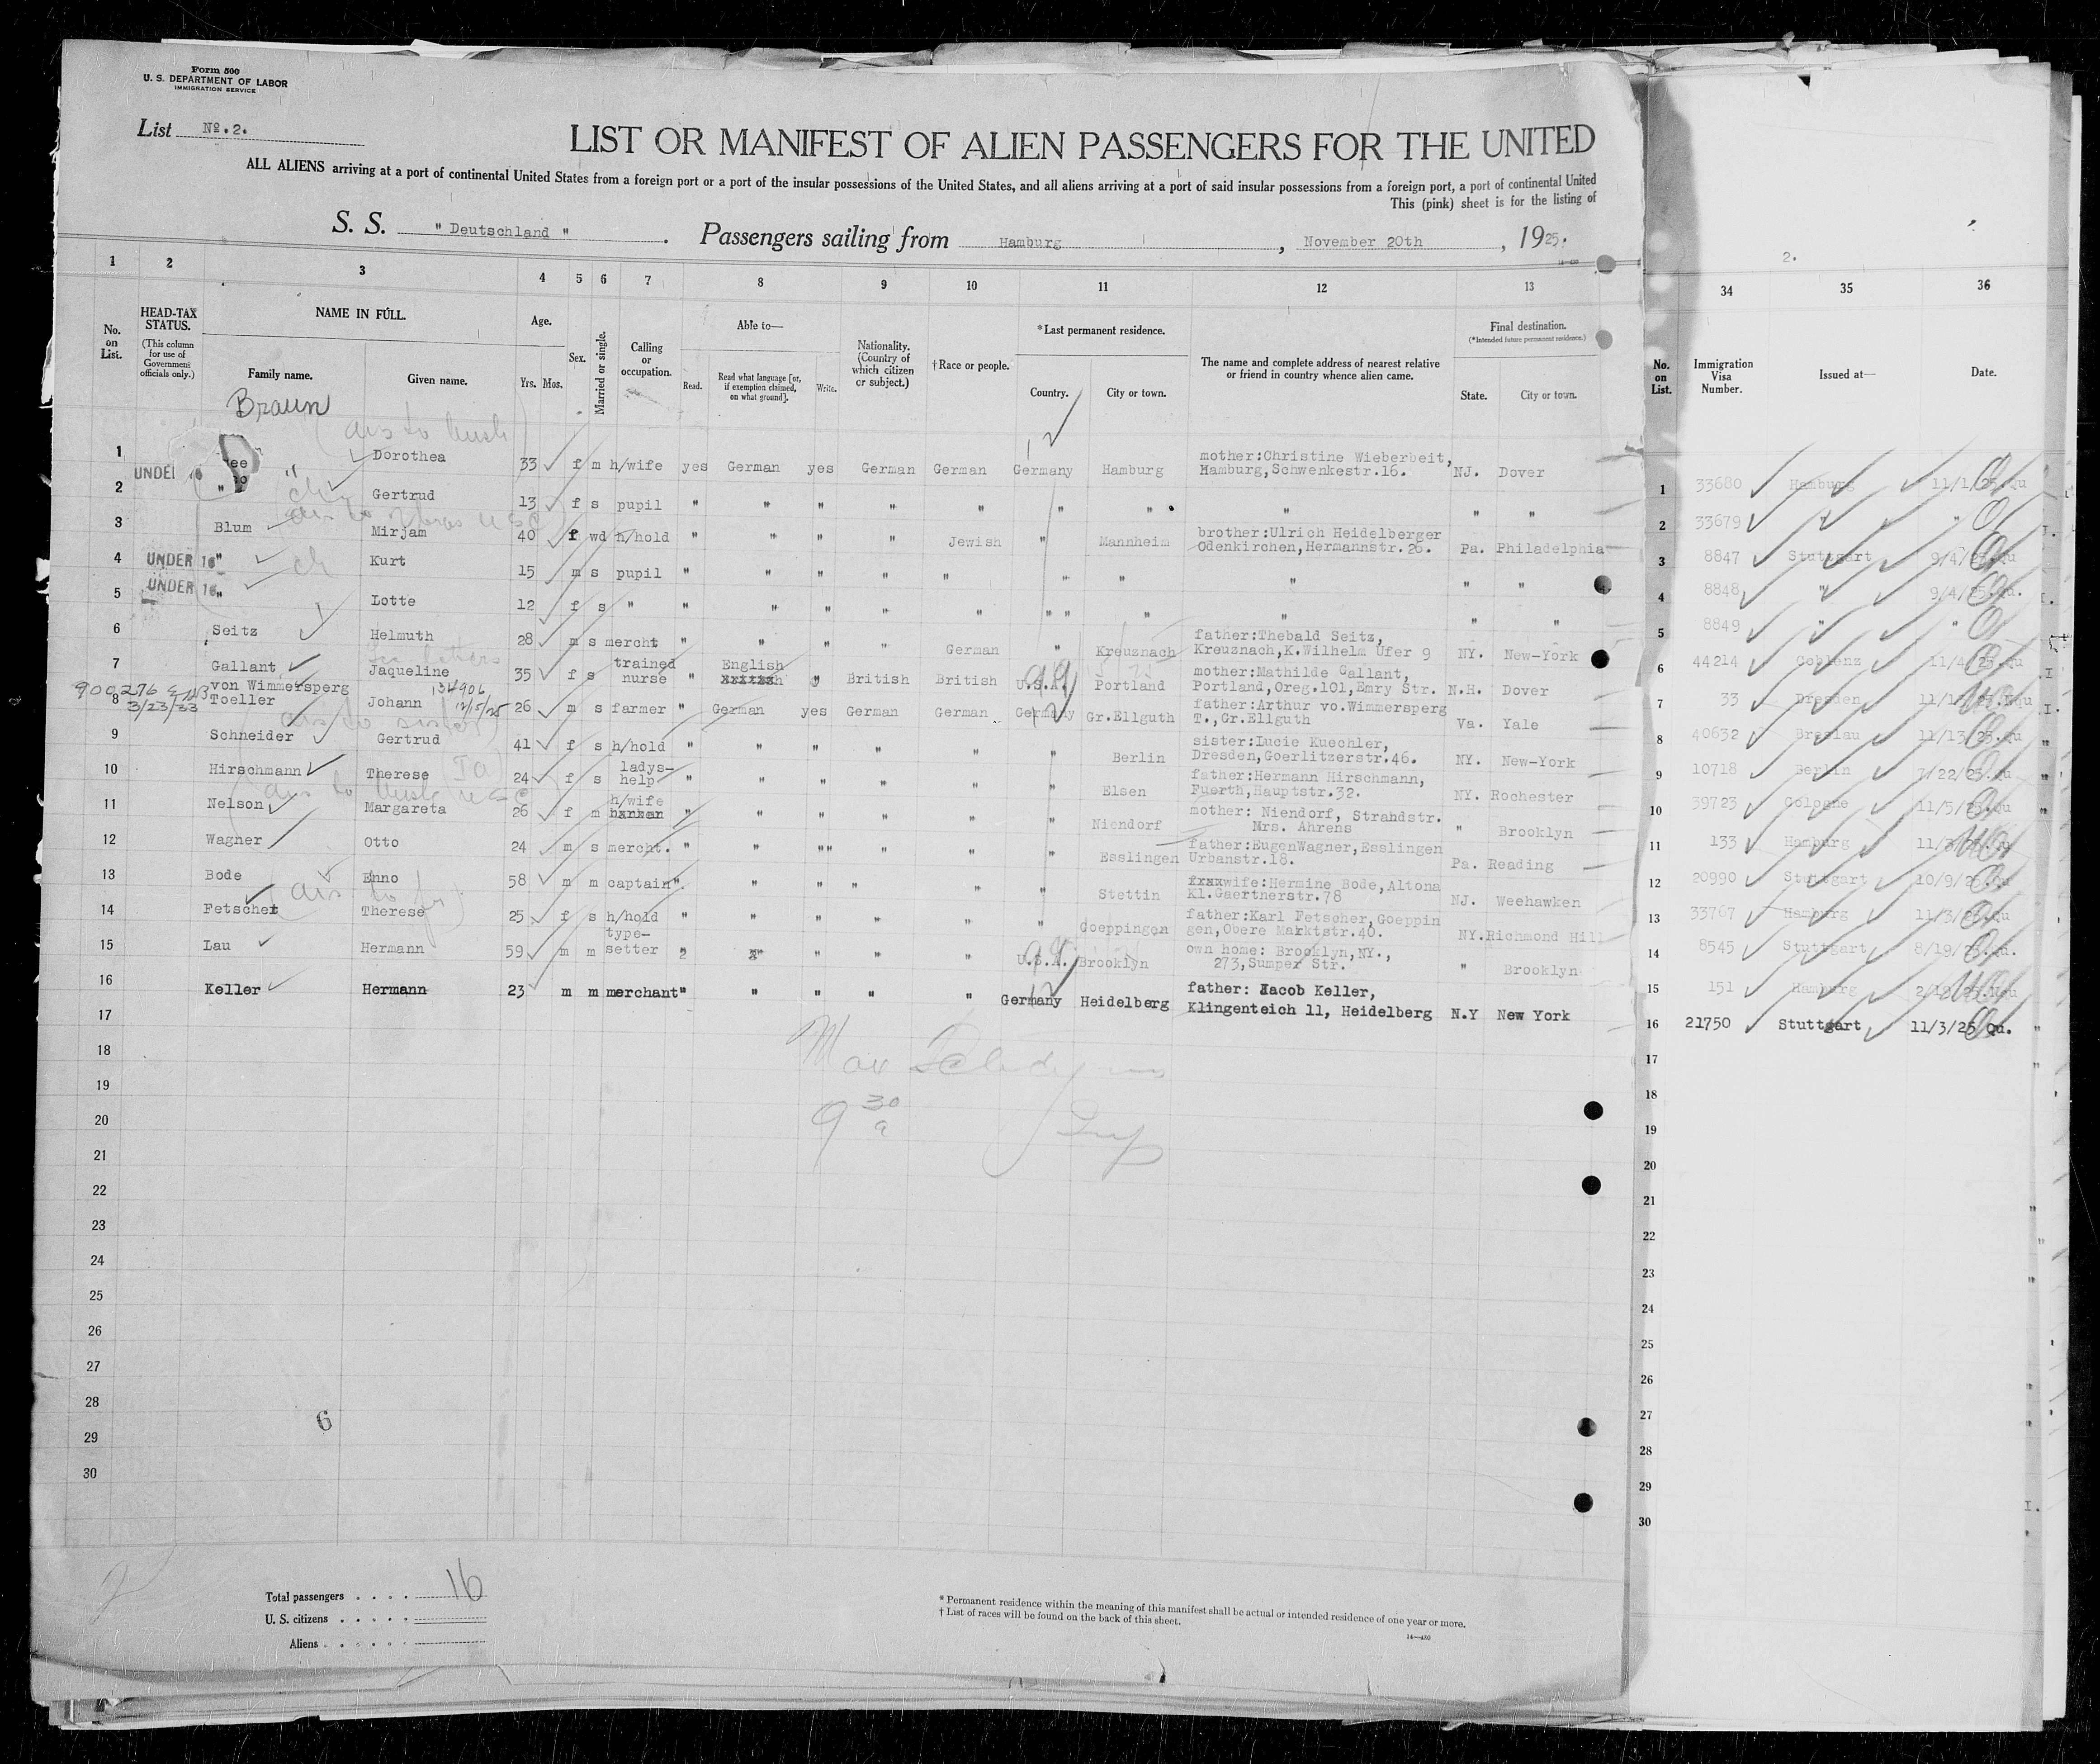 Form 500
U. S. DEPARTMENT OF LABOR
IMMIGRATION SERVICE
List No. 2.
LIST OR MANIFEST OF ALIEN PASSENGERS FOR THE UNITED
ALL ALIENS arriving at a port of continental United States from a foreign port or a port of the insular possessions of the United States, and all aliens arriving at a port of said insular possessions from a foreign port, a port of continental United
This (pink) sheet is for the listing of
S. S. " Deutschland " . Passengers sailing from Hamburg , November 20th , 1925.
2.
1 2 3 4 5 6 7 8 9 10 11 12 13 34 35 36
No. on List.
HEAD-TAX STATUS.
(This column for use of Government officials only.)
NAME IN FULL.
Family name.
Given name.
Age.
Yrs. Mos.
Sex.
Married or single.
Calling or occupation.
Able to—
Read.
Read what language [or, if exemption claimed, on what ground].
Write.
Nationality. (Country of which citizen or subject.)
†Race or people.
*Last permanent residence.
Country.
City or town.
The name and complete address of nearest relative or friend in country whence alien came.
Final destination.
(*Intended future permanent residence.)
State.
City or town.
No. on List.
Immigration Visa Number.
Issued at—
Date.
Braun
1 Dorothea 33 f m h/wife yes German yes German German Germany Hamburg mother:Christine Wieberbeit, Hamburg,Schwenkestr.16. NJ. Dover
UNDER 16
2 " Gertrud 13 f s pupil " " " " " " " " "
3 Blum Mirjam 40 f wd h/hold " " " " Jewish " Mannheim brother:Ulrich Heidelberger Odenkirchen,Hermannstr.26. Pa. Philadelphia
4 UNDER 16 " Kurt 15 m s pupil " " " " " " " " " "
5 UNDER 16 " Lotte 12 f s " " " " " " " " " " "
6 Seitz Helmuth 28 m s mercht " " " " German " Kreuznach father:Thebald Seitz, Kreuznach,K.Wilhelm Ufer 9 NY. New-York
7 Gallant Jaqueline 35 f s trained nurse " English " British British U.S.A. Portland mother:Mathilde Gallant, Portland,Oreg.101,Emry Str. N.H. Dover
900276
3/23/33
134906
12/15/25
8 von Wimmersperg Toeller Johann 26 m s farmer " German yes German German Germany Gr.Ellguth father:Arthur vo.Wimmersperg T.,Gr.Ellguth Va. Yale
9 Schneider Gertrud 41 f s h/hold " " " " " " Berlin sister:Lucie Kuechler, Dresden,Goerlitzerstr.46. NY. New-York
10 Hirschmann Therese 24 f s ladys-help " " " " " " Elsen father:Hermann Hirschmann, Fuerth,Hauptstr.32. NY. Rochester
11 Nelson Margareta 26 f m h/wife " " " " " " Niendorf mother: Niendorf, Strandstr. Mrs. Ahrens " Brooklyn
12 Wagner Otto 24 m s mercht. " " "" " " " Esslingen father:EugenWagner,Esslingen Urbanstr.18. Pa. Reading
13 Bode Enno 58 m m captain " " " " " " Stettin wife:Hermine Bode,Altona Kl.Gaertnerstr.78 NJ. Weehawken
14 Fetscher Therese 25 f s h/hold " " " " " " Goeppingen father:Karl Fetscher,Goeppin gen,Obere Marktstr.40. NY. Richmond Hill
15 Lau Hermann 59 m m type-setter " " " " " U.S.A. Brooklyn own home: Brooklyn,NY., 273,Sumper Str. " Brooklyn
16 Keller Hermann 23 m m merchant " " " " " Germany Heidelberg father: Jacob Keller, Klingenteich 11, Heidelberg N.Y New York
17
18
19
20
21
22
23
24
25
26
27
28
29
30
Max
9 30 a
6
1 33680 Hamburg 11/1/25.Qu
2 33679 " "
3 8847 Stuttgart 9/4/25.Qu
4 8848 " 9/4/25.Qu.
5 8849 " "
6 44214 Coblenz 11/4/25.Qu
7 33 Dresden
8 40632 Breslau 11/13/25.Qu
9 10718 Berlin 7/22/25.Qu
10 39723 Cologne 11/5/25.Qu
11 133 Hamburg
12 20990 Stuttgart 10/9/25.Qu
13 33767 Hamburg 11/3/25.Qu
14 8545 Stuttgart 8/19/25.Qu.
15 151 Hamburg
16 21750 Stuttgart 11/3/25 Qu.
17
18
19
20
21
22
23
24
25
26
27
28
29
30
Total passengers . . . . 16
U. S. citizens . . . . .
Aliens . . . . . .
* Permanent residence within the meaning of this manifest shall be actual or intended residence of one year or more.
† List of races will be found on the back of this sheet.
14—430